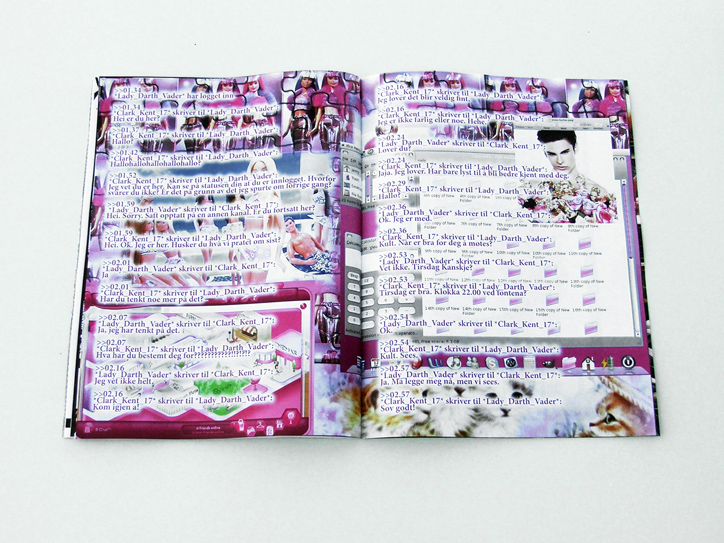 >>01.34
*Lady_Darth_Vader* har logget inn
>>01.34
*Clark_Kent_17* skriver til *Lady_Darth_Vader*:
Hei er du her?
>>01.37
*Clark_Kent_17* skriver til *Lady_Darth_Vader*:
Hallo?
>>01.42
*Clark_Kent_17* skriver til *Lady_Darth_Vader*:
Hallohallohallohallohallo?
>>01.52
*Clark_Kent_17* skriver til *Lady_Darth_Vader*:
Jeg vet du er her. Kan se på statusen din at du er innlogget. Hvorfor
svarer du ikke? Er det på grunn av det jeg spurte om forrige gang?
>>01.59
*Lady_Darth_Vader* skriver til *Clark_Kent_17*:
Hei. Sorry. Satt opptatt på en annen kanal. Er du fortsatt her?
>>01.59
*Clark_Kent_17* skriver til *Lady_Darth_Vader*:
Hei. Ok. Jeg er her. Husker du hva vi pratet om sist?
>>02.01
*Lady_Darth_Vader* skriver til *Clark_Kent_17*:
Ja
>>02.01
*Clark_Kent_17* skriver til *Lady_Darth_Vader*:
Har du tenkt noe mer på det?
>>02.07
*Lady_Darth_Vader* skriver til *Clark_Kent_17*:
Ja, jeg har tenkt på det.
>>02.07
*Clark_Kent_17* skriver til *Lady_Darth_Vader*:
Hva har du bestemt deg for
>>02.16
*Lady_Darth_Vader* skriver til *Clark_Kent_17*:
Jeg vet ikke helt.
>>02.16
*Clark_Kent_17* skriver til *Lady_Darth_Vader*:
Kom igjen a!
>>02.16
*Clark_Kent_17* skriver til *Lady_Darth_Vader*:
Jeg lover det blir veldig fint.
>>02.16
*Clark_Kent_17* skriver til *Lady_Darth_Vader*:
Jeg er ikke farlig eller noe. Hehe.
*Lady_Darth_Vader* skriver til *Clark_Kent_17*:
Lover du?
>>02.24
*Clark_Kent_17* skriver til *Lady_Darth_Vader*:
Jaja. Jeg lover. Har bare lyst til å bli bedre kjent med deg.
>>02.29
*Clark_Kent_17* skriver til *Lady_Darth_Vader*:
Hallo?
>>02.36
*Lady_Darth_Vader* skriver til *Clark_Kent_17*:
Ok. Jeg er med.
>>02.36
*Clark_Kent_17* skriver til *Lady_Darth_Vader*:
Kult. Når er bra for deg å møtes?
>>02.53
*Lady_Darth_Vader* skriver til *Clark_Kent_17*:
Vet ikke. Tirsdag Kanskje?
>>02.53
*Clark_Kent_17* skriver til *Lady_Darth_Vader*:
Tirsdag er bra. Klokka 22.00 ved Fontena?
>>02.54
*Lady_Darth_Vader* skriver til *Clark_Kent_17*:
Ok.
*Clark_Kent_17* skriver til *Lady_Darth_Vader*:
Kult. Sees.
>>02.57
*Lady_Darth_Vader* skriver til *Clark_Kent_17*:
Ja. Må legge meg nå, men vi sees.
>>02.57
*Clark_Kent_17* skriver til *Lady_Darth_Vader*:
Sov godt!